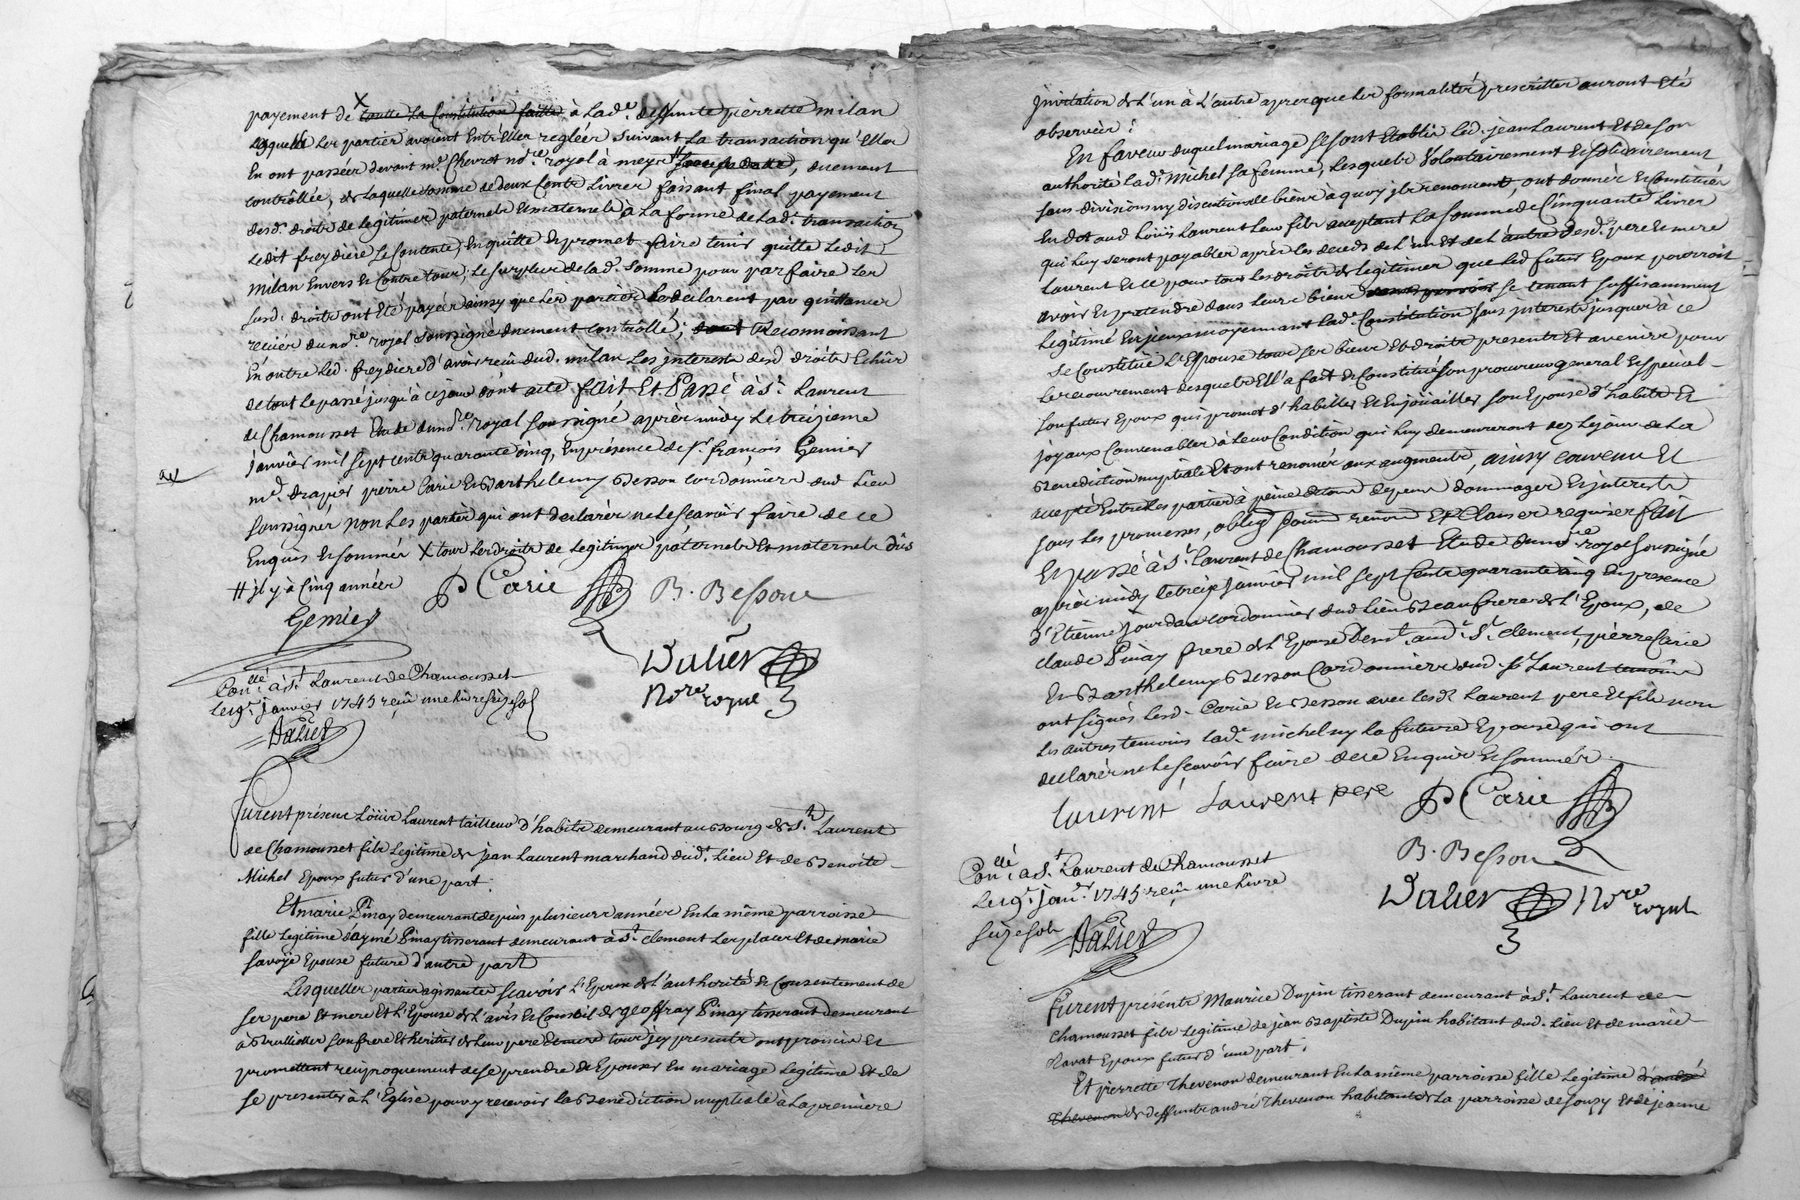 payement de X toutte la Constitution faitte à lade. deffunte pierrette milan
lesquelles les parties avoient Entr'Elles reglées suivant la transaction qu'Elles
En ont passées devant me. Chevrot nore. royal à meys # sous sa datte, duement
contrôllée, & laquelle somme de deux Cents Livres faisant final payement
desd. droits de legitimes paternels & maternels à la forme de lade. transaction
ledit freydiere se Contente, En quitte & promet faire tenir quitte ledit
milan Envers & Contre tous, le surplus de lad. somme pour parfaire les
susd. droits ont été payées ainsy que lesd parties le declarent par quittances
reciües du nore. royal soussigné duement contrôllé; dont Reconnoissant
En outre led. freydiere d'avoir reçu dud. milan les interests desd droits Echus
de tout le passé jusqu'à ce jour dont acte fait Et Passé à St. Laurent
de Chamousset Etude du nore. royal soussigné après midy le treizieme
janvier mil sept cents quarante cinq, En présence de sr. françois Gemier
md. drapier pierre Carie & Barthelemy Besson cordonniers dud Lieu
soussignés non les parties qui ont declarées ne le sçavoir faire de ce
Enquis & sommés X tous les droits de legitimes paternels Et maternels dûs
# il y à Cinq années
P Carie B. Besson
Gemier
Dalier
Nore royal
Conllé. à St. Laurent de Chamousset
le 19e. janvier 1745 reçu une livre seize sols
Dalier
Furent présents Loüis Laurent tailleur d'habits demeurant au Bourg de St. Laurent
de Chamousset fils legitime de jean Laurent marchand dud. Lieu Et de Benoite
Michel Epoux futur d'une part;
Et marie Pinay demeurant depuis plusieurs années En la même parroisse
fille legitime d'aymé Pinay tisserant demeurant à St. clement les places Et de marie
savoye Epouse future d'autre part
Lesquelles parties agissantes sçavoir l'Epoux de l'authorité & Consentement de
ses pere Et mere Et l'Epouse de l'avis & Conseil de geoffray Pinay tisserant demeurant
à Brullioles son frere Et héritier de leur pere demere tous jcy presents ont promis Et
promettent reciproquement de se prendre & Epouser En mariage legitime Et de
se presenter à l'Eglise pour y recevoir la Benediction nuptiale à la premiere
jnvitation de l'un à l'autre apres que les formalités prescrittes auront Eté
observées;
En faveur duquel mariage se sont Etablis led. jean Laurent Et de son
authorité lade. Michel sa femme, lesquels Volontairement & solidairement
sans division ny discution de biens à quoy ils renoncent, ont donnés & Constitués
En dot aud Loüis Laurent leur fils acceptant la somme de Cinquante Livres
qui luy seront payables après les deceds de l'un Et de l'autre desd. pere & mere
Laurent & ce pour tous les droits de legitimes que led futur Epoux pourroit
avoir & pretendre dans leurs biens se tenant suffisamment
legitimé En jceux moyennant lade. Constitution sans interests jusques à ce
se Constitue l'Epouse tous ses biens Et droits presents Et avenirs pour
le recouvrement desquels Elle a fait & Constitué son procureur general & special
son futur Epoux qui promet d'habiller Et Enjoüailler son Epouse d'habits Et
joyaux Convenables à leur Condition qui luy demeureront dez le jour de la
Benediction nuptiale Et ont renoncé aux augments, ainsy convenu Et
accepté Entre les parties à peine de tous depens dommages & interests
sous les promesses, obligons. soumons. renons. & Clauses requises fait
Et passé à St. Laurent de Chamousset Etude du nore. royal soussigné
après midy le treize janvier mil sept Cents quarante cinq En presence
d'Etienne jourdan cordonnier dud lieu Beaufrere de l'Epoux, de
claude Pinay frere de l'Epouse demt. aud. St. clement, pierre Carie
& Barthelemy Besson Cordonniers dud. St. Laurent temoins
ont signés lesd. Carie & Besson avec lesd Laurent pere Et fils non
les autres temoins lade. michel ny la future Epouse qui ont
declarés ne le sçavoir faire de ce Enquis & sommés.
laurent Laurent pere P Carie
B. Besson
Dalier Nore royal
Conllé. à St. Laurent de Chamousset
le 19e. janer. 1745 reçu une livre
seize sols Dalier
Furent présents Maurice Dupin tisserant demeurant à St. Laurent de
Chamousset fils legitime de jean Baptiste Dupin habitant dud. Lieu Et de marie
Ravat Epoux futur d'une part;
Et pierrette Thevenon demeurant En la même parroisse fille legitime d'andré
Thevenon de deffunts andré Thevenon habitant de la parroisse de souzy Et de jeanne